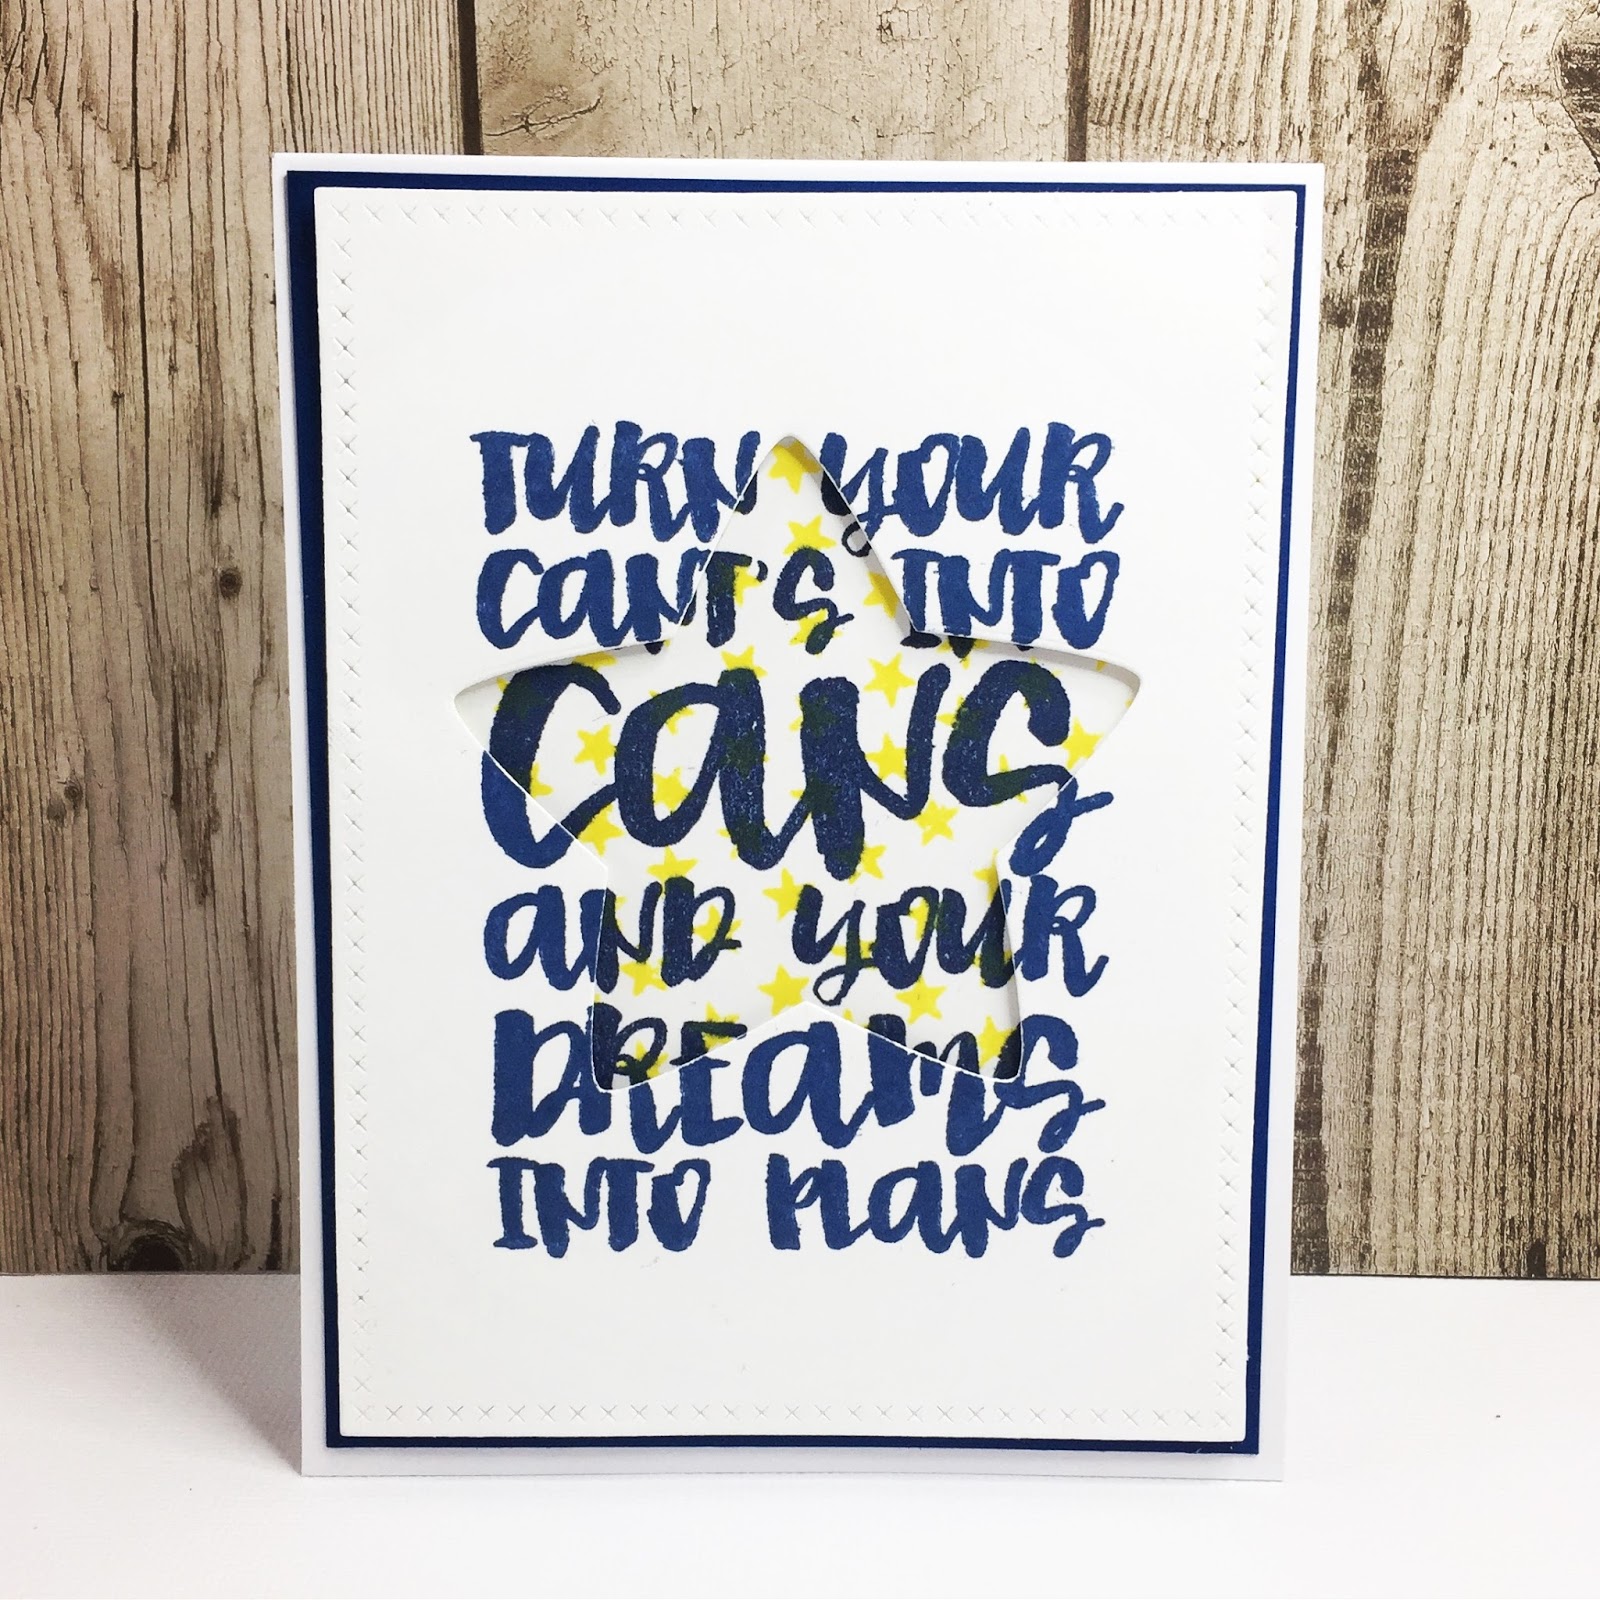 TURN YOUR
CANT'S INTO
CANS
AND YOUR
DREAMS
INTO PLANS